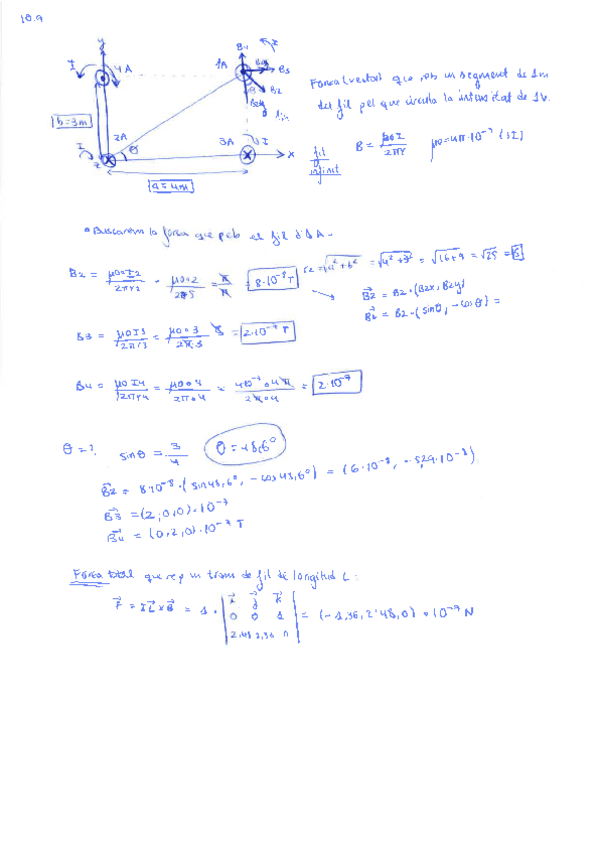 10.9
y
I
4A
1A
B4
I
B3
B2
b=3m
2A
I
θ
3A
I
x
z
a=4m
Força (vector) que rep un segment de 1m
del fil pel que circula la intensitat de 1A.
fil
infinit
B = μ0·I / 2πr
μ0=4π·10⁻⁷ (SI)
• Buscarem la força que pateix el fil d'1A.
B2 = μ0·I2 / 2πr2 = μ0·2 / 2π5 = π / π = 8·10⁻⁸ T
r2 = √a²+b² = √4²+3² = √16+9 = √25 = 5
B2 = B2·(B2x, B2y)
B2 = B2·(sinθ, -cosθ) =
B3 = μ0I3 / 2πr3 = μ0·3 / 2π·3 = 2·10⁻⁷ T
B4 = μ0I4 / 2πr4 = μ0·4 / 2π·4 = 4π10⁻⁷·4 / 2π·4 = 2·10⁻⁷
θ = ?
sinθ = 3 / 4
θ = 48,6º
B2 = 8·10⁻⁸·(sin 48,6º, -cos 48,6º) = (6·10⁻⁸, -5,29·10⁻⁸)
B3 = (2,0,0)·10⁻⁷
B4 = (0,2,0)·10⁻⁷ T
Força total que rep un tram de fil de longitud L:
F = IL×B = 1·
i j k
0 0 1
2,48 1,36 0
= (-1,36, 2'48, 0)·10⁻⁷ N